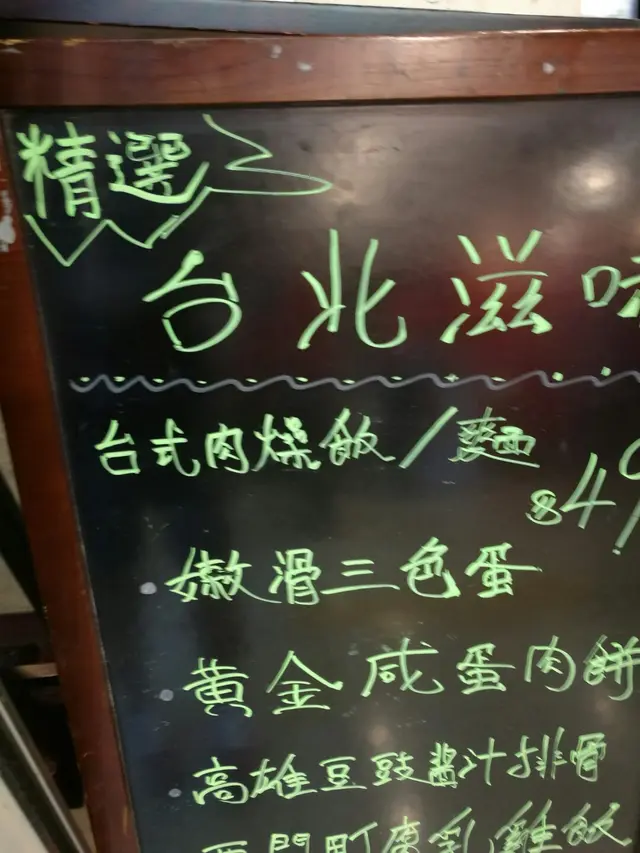 精選
台北滋味
台式肉燥飯/麵
$49
嫩滑三色蛋
黃金咸蛋肉餅
高雄豆豉醬汁排骨
西門町腐乳雞飯